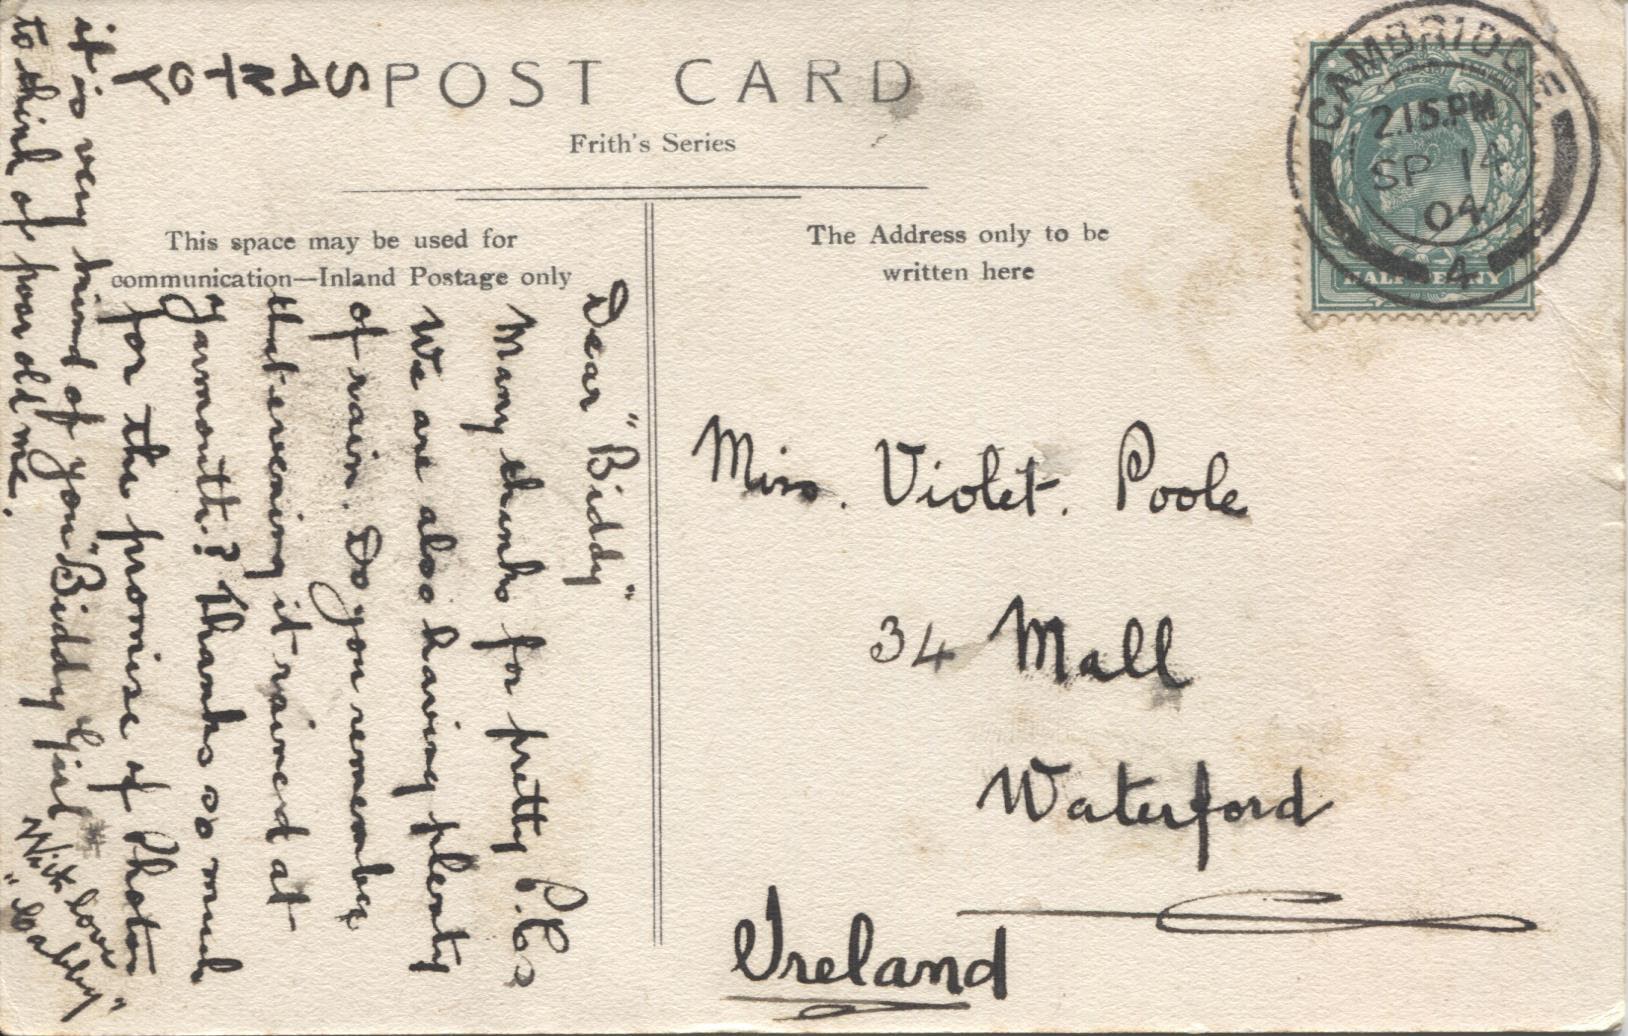 SAN TOY
POST CARD
Frith's Series
This space may be used for
communication—Inland Postage only
The Address only to be
written here
CAMBRIDGE
2.15.PM
SP 14
04
4
HALFPENNY
Dear "Biddy"
Many thanks for pretty P.Cs
We are also having plenty
of rain. Do you remember
that evening it rained at
Yarmouth? Thanks so much
for the promise of Photos
it is very kind of you "Biddy Girl"
to think of poor old me.
With love
Miss. Violet. Poole
34 Mall
Waterford
Ireland